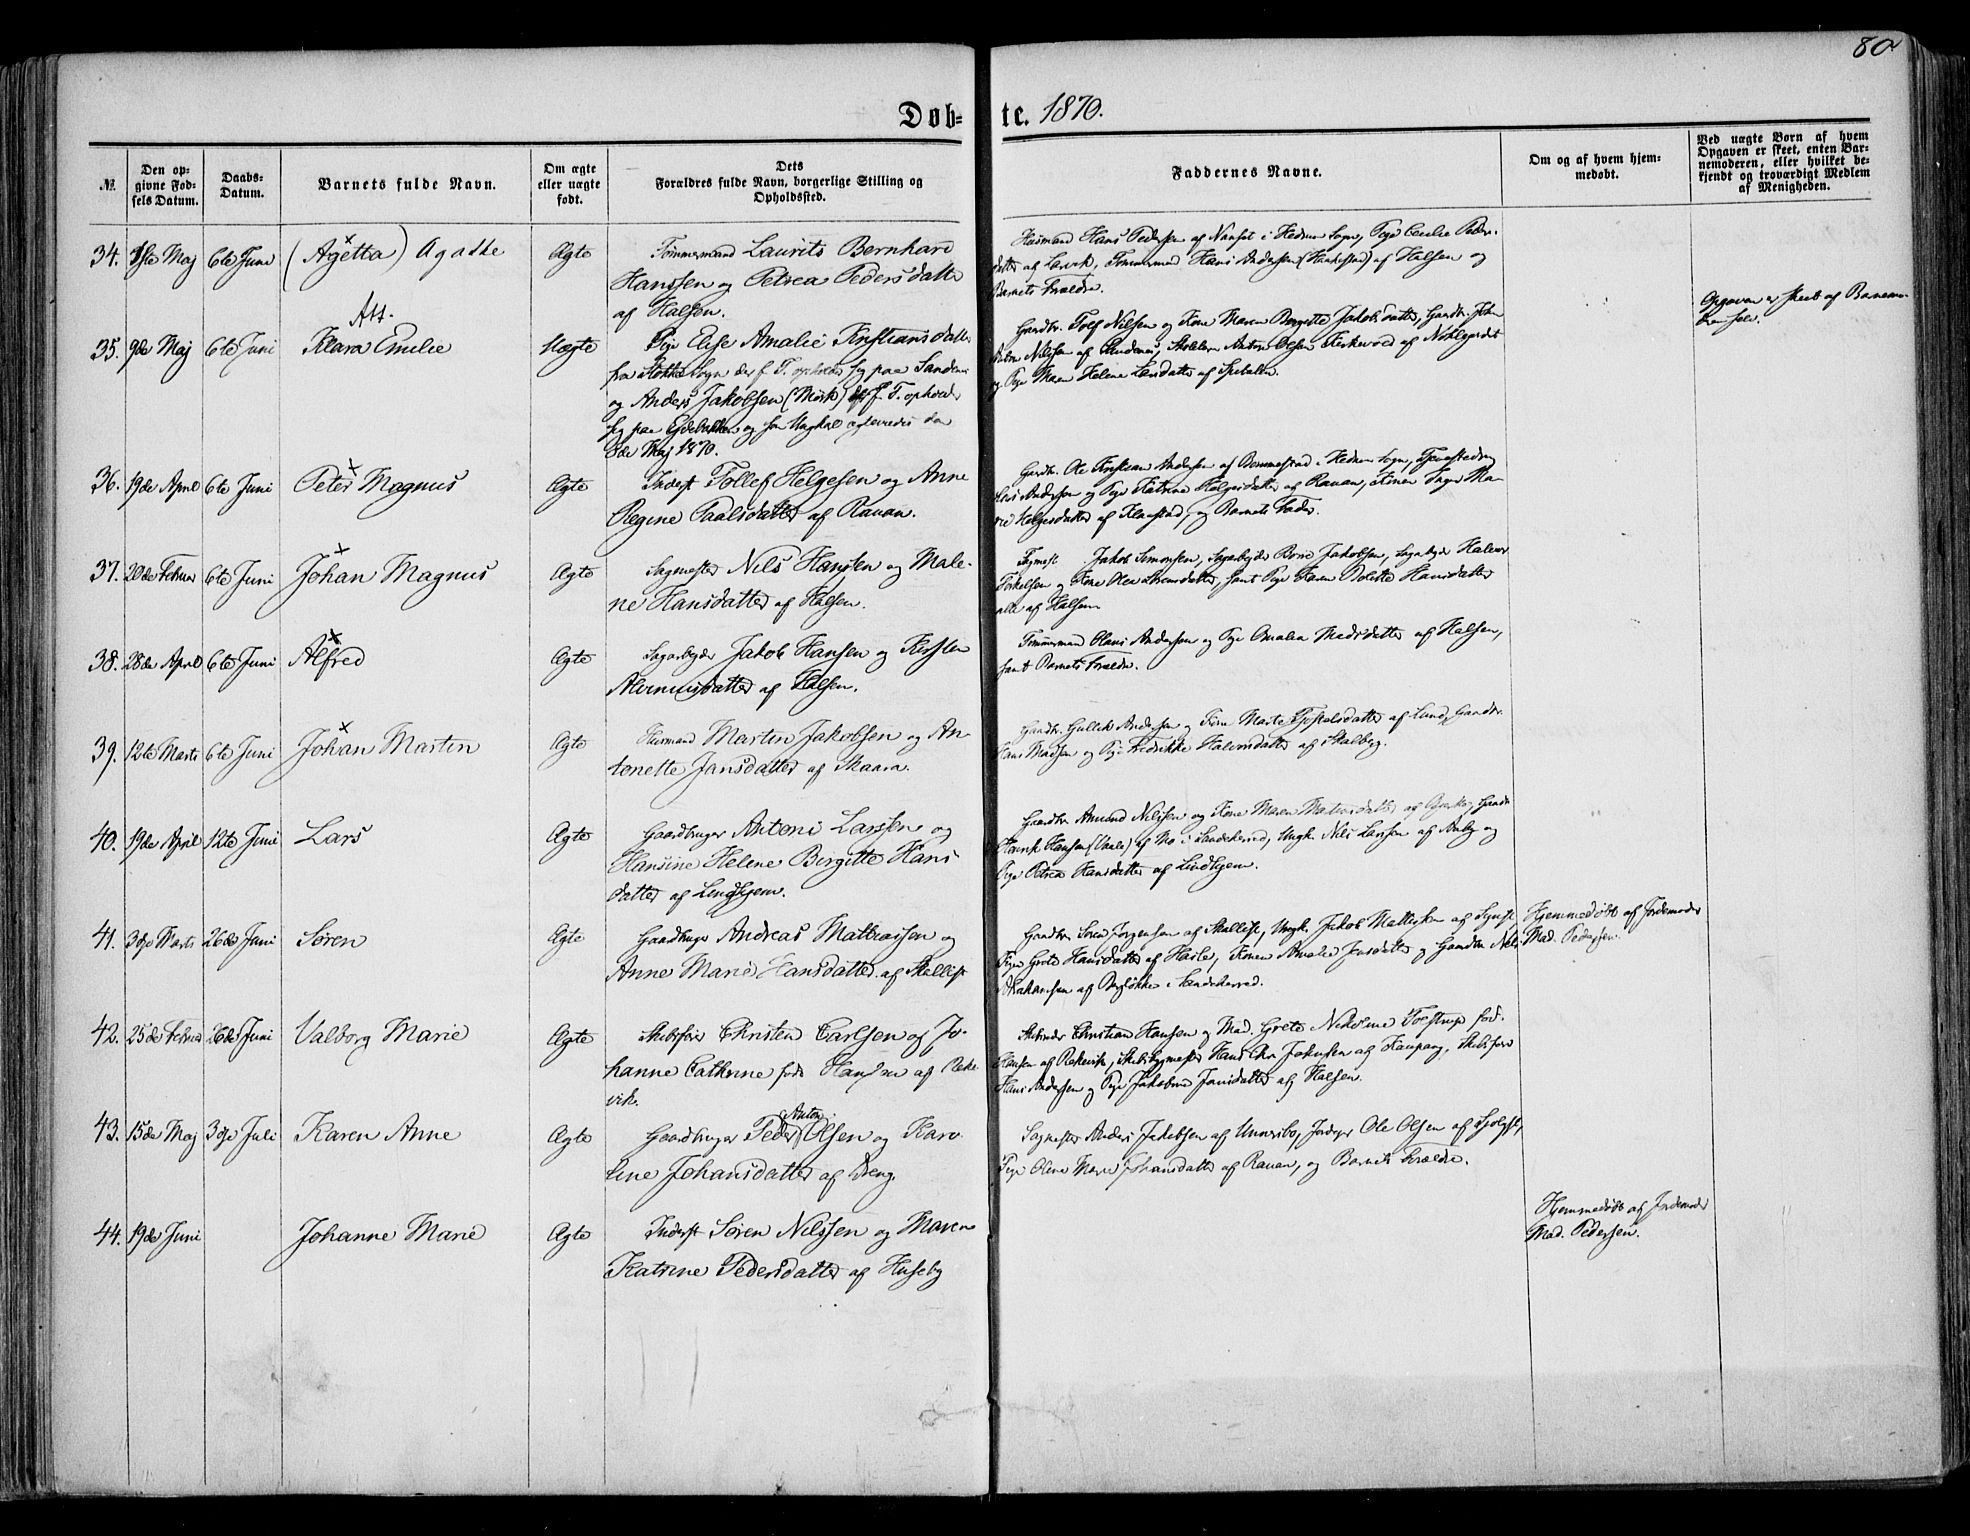 80
Døb= te. 1870.
№
Den op-
givne Fød-
sels Datum.
Daabs-
Datum.
Barnets fulde Navn.
Om ægte
eller uægte
født.
Dets
Forældres fulde Navn, borgerlige Stilling og
Opholdssted.
Faddernes Navne.
Om og af hvem hjem-
medøbt.
Ved uægte Børn af hvem
Opgaven er skeet, enten Bar-
nemoderen, eller hvilket be-
kjendt og troværdigt Medlem
af Menigheden.
34. Maj 6te Juni (Agetta) Agathe Ægte Tømmermand Laurits Bernhard
Hanssen og Petrea Pedersdatter
af Halsen.
Husmand Hans Pedersen af Nanset i Hedrum Sogn, Pige Cecilie Peders-
datter af Larvik, Tømmermand Hans Andersen af Halsen og
Barnets Forældre.
35. 9de Maj 6te Juni Att. Klara Emilie Uægte Pige Elise Amalie Kristiansdatter
fra Stokke Sogn der f. T. opholder sig paa Sandenes
og Anders Jakobsen (Mørk) der f. T. opholder
sig paa og som Ungkal ægteviedes den
8de Maj 1870.
Gaardbr. Tolf Nilsen og Kone Maren Birgitte Jakobsdatter, Gaardbr. John
Anton Nilsen af Sandenes, Skolelærer Anton Olsen af
og Pige Maren Helene Larsdatter af
Opgaven er skeet af Barnemo-
deren selv.
36. 19de April 6te Juni Peter Magnus Ægte Inderst Tollef Helgesen og Anne
Regine Paalsdatter af Rauan.
Gaardbr. Ole Kristian Andersen af Bommestad i Hedrum Sogn,
Andersen og Pige Katrine Helgesdatter af Rauan, Konen Inger Ma-
rie Helgesdatter af Klaastad, og Barnets Fader.
37. 20de Februar 6te Juni Johan Magnus Ægte Sagmester Nils Hansen og Male-
ne Hansdatter af Halsen.
Jakob Simonsen, Sagarbejder Jakobsen, Sagarbejder Halvor
Terkelsen og Kone samt Pige Karen Bolette Hansdatter
alle af Halsen
38. 28de April 6te Juni Alfred Ægte Sagarbejder Jakob Hansen og Kirsten
datter af Halsen.
Tømmermand Hans Andersen og Pige Amalia Madsdatter af Halsen,
samt Barnets Forældre.
39. 12te Marts 6te Juni Johan Martin Ægte Husmand Martin Jakobsen og An-
tonette Jansdatter af Skaara.
Gaardbr. Gullik Andersen og Kone Marte af Lund, Gaardbr.
Hans Madsen og Pige Fredrikke Halvorsdatter af Skalberg.
40. 19de April 12te Juni Lars Ægte Gaardbruger Antoni Larssen og
Hansine Helene Birgitte Hans
datter af Lindhjem.
Gaardbr. Amund Nilssen og Kone Maren
Henrik Hansen af Mo i Sandeherred, Ungk. Nils Larssen af og
Pige Petrea Hansdatter af Lindhjem.
41. 3die Marts 26de Juni Søren Ægte Gaardbruger Andreas Mathiassen og
Anne Marie Hansdatter af Skallist
Gaardbr. Søren Jørgensen af Skallist, Ungk. Jakob
Pigen Grete Hansdatter af Hasle, Konen Amalie Jensdatter og Gaardbr. Nils
Abrahamsen af i Sandeherred.
Hjemmedøbt af Jordemoder
Mad. Pedersen.
42. 25de Februar 26de Juni Valborg Marie Ægte Skibsfører Christen Carlsen og Jo-
hanne Cathrine født Hansen af Reke
vik.
Skibsreder Christian Hansen og Mad. Grete Nikoline Toftrup fød.
Hansen af Rekevik, Skibsbygmester Hans Chr. Jakobsen af Kaupang, Skibsfører
Hans Andersen og Pige Jakobine Jansdatter af Halsen.
43. 15de Maj 3die Juli Karen Anne Ægte Gaardbruger Peder Anton Olsen og Karo-
line Johansdatter af Eeng.
Sagmester Anders Jakobsen af Unnersbo, Ole Olsen af Sjolyst,
Pige Olena Marie Johansdatter af Rauan, og Barnets Forældre.
44. 19de Juni Johanne Marie Ægte Inderst Søren Nilssen og Maren
Katrine Pedersdatter af Huseby
Hjemmedøbt af Jordemoder
Mad. Pedersen.